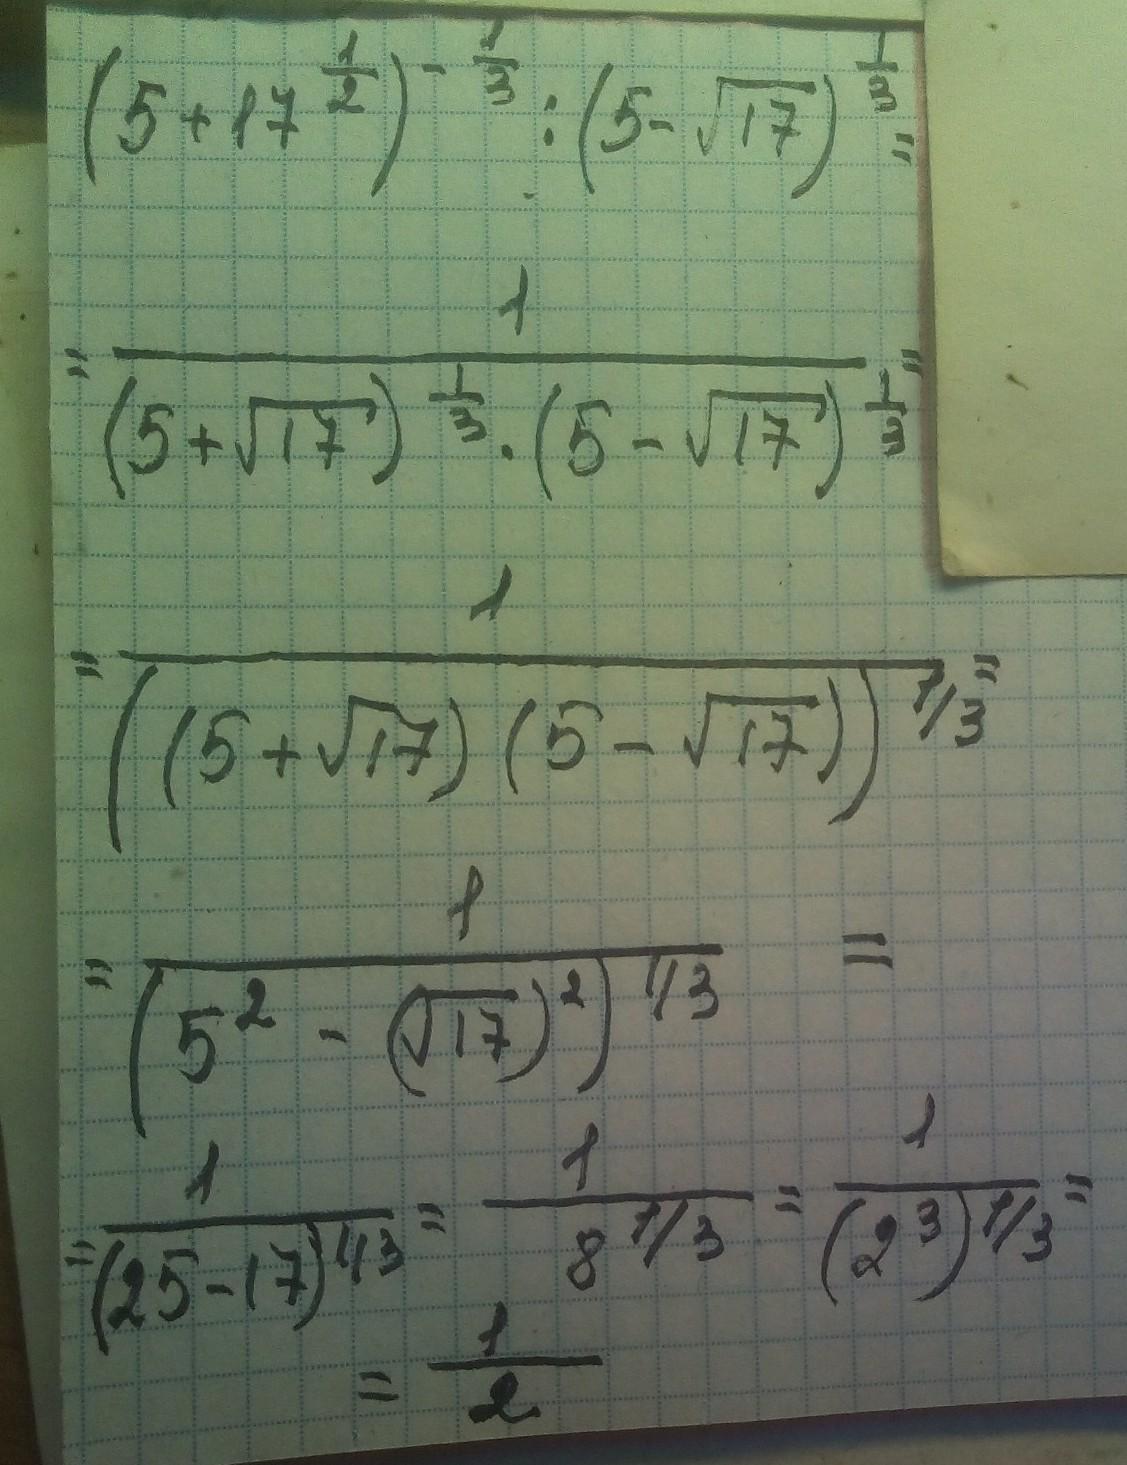 (5+17^{\frac{1}{2}})^{-\frac{1}{3}} : (5-\sqrt{17})^{\frac{1}{3}} =
= \frac{1}{(5+\sqrt{17})^{\frac{1}{3}} \cdot (5-\sqrt{17})^{\frac{1}{3}}} =
= \frac{1}{((5+\sqrt{17})(5-\sqrt{17}))^{1/3}} =
= \frac{1}{(5^2-(\sqrt{17})^2)^{1/3}} =
= \frac{1}{(25-17)^{1/3}} = \frac{1}{8^{1/3}} = \frac{1}{(2^3)^{1/3}} =
= \frac{1}{2}